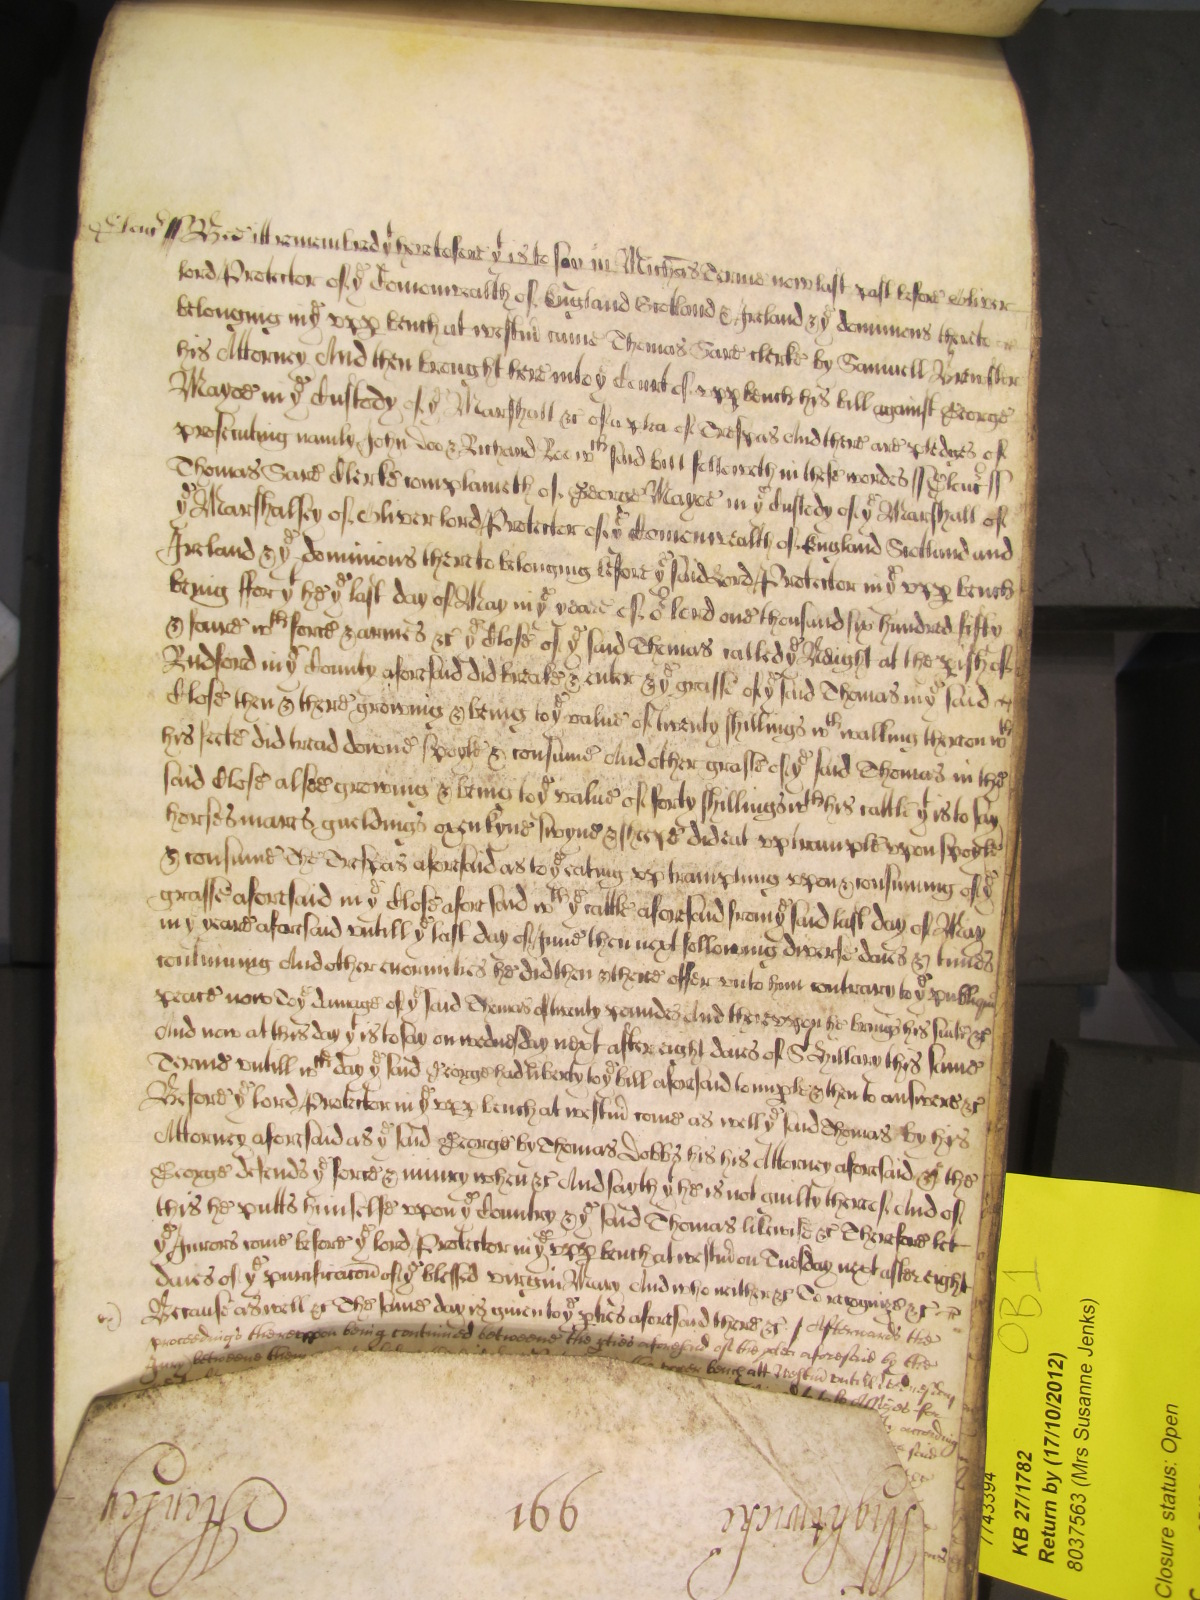 Glouc ss Bee itt remembred yt heretofore yt is to say in Michās Terme now last past before Oliver
lord Protector of ye Comonwealth of England Scotland & Ireland & ye dominions thereto
belonging in ye upp bench at westm̄ came Thomas Sare Clerke by Samuell Brewster
his Attorney And then brought here into ye Court of upp bench his bill against George
Mayoe in ye Custody of ye Marshall &c of a plea of Trespas And there are pledges of
prosecuting namly John Doe & Richard Roe wch said bill followeth in these wordes ss Glouc ss
Thomas Sare Clerke complaineth of George Mayoe in ye Custody of ye Marshall of
ye Marshalsey of Oliver lord Protector of ye Comonwealth of England Scotland and
Ireland & ye dominions thereto belonging before ye said Lord Protector in ye upp bench
being ffor yt he ye last day of May in ye yeare of or lord one thousand six hundred fifty
& foure wth force & armes &c ye Close of ye said Thomas called ye at the pish of
Rudford in ye County aforesaid did breake & enter & ye grasse of ye said Thomas in ye said
Close then & there growing & being to ye value of twenty shillings wth walking thereon wth
his feete did tread downe spoyle & consume And other grasse of ye said Thomas in the
said Close alsoe growing & being to ye value of forty shillings wth his cattle yt is to say
horses mares gueldings oxen kyne swyne & sheepe did eat up trample upon spoyle
& consume The Trespas aforesaid as to ye eating up trampling upon & consuming of ye
grasse aforesaid in ye Close aforesaid wth ye cattle aforesaid from ye said last day of May
in ye yeare aforesaid untill ye last day of June then next following diverse daies & times
continuing And other enormities he did then & there offer unto him contrary to ye publique
peace now To ye damage of ye said Thomas of twenty poundes And thereupon he brings his suite &c
And now at this day yt is to say on wednesday next after eight daies of St Hillary this same
Terme untill wch day ye said George had liberty to ye bill aforesaid to imple & then to answere &c
Before ye lord Protector in ye upp bench at westm̄ come as well ye said Thomas by his
Attorney aforesaid as ye said George by Thomas Dobbs his his Attorney aforesaid & ye the
George defends ye force & iniury when &c And sayth yt he is not guilty thereof And of
this he putts himselfe upon ye Country & ye said Thomas likewise &c Therefore let
ye Jurors come before ye lord Protector in ye upp bench at westm̄ on Tuesday next after eight
daies of ye purificacōn of ye blessed virgin Mary And who neither &c To recognize &c
Because as well &c The same day is given to ye pties aforesaid there &c Afterwards the
proceedings thereupon being continued betweene the pties aforesaid of the plea aforesaid by the
Jury betweene them bench att Westm̄ untill
Assizes for
according
said
Henley
991
Nightwicke
7743394
KB 27/1782
OB1
Return by (17/10/2012)
8037563 (Mrs Susanne Jenks)
Closure status: Open